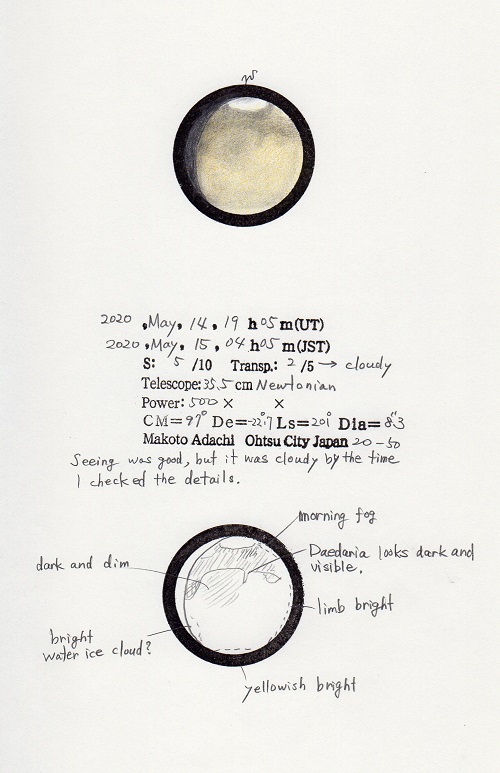 2020 , May, 14, 19 h 05 m(UT)
2020 , May, 15, 04 h 05 m(JST)
S: 5 /10 Transp.: 2 /5 → cloudy
Telescope: 35.5 cm Newtonian
Power: 500 × ×
CM=97° De=-22°.7 Ls=201° Dia=8".3
Makoto Adachi Ohtsu City Japan 20-50
Seeing was good, but it was cloudy by the time
I checked the details.
morning fog
Daedaria looks dark and
visible.
dark and dim
limb bright
bright
water ice cloud?
yellowish bright